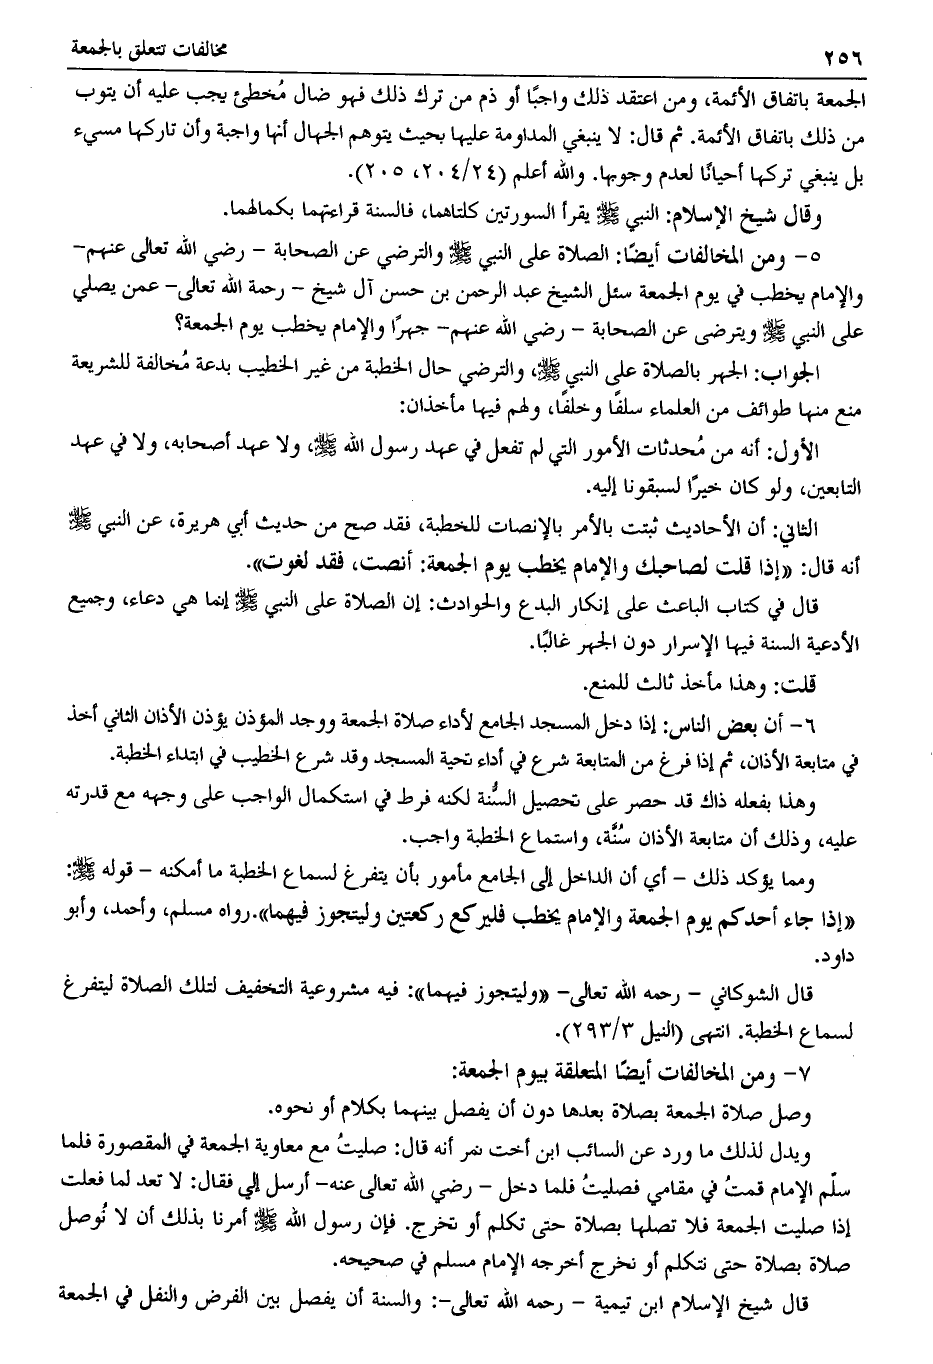 ٢٥٦
مخالفات تتعلق بالجمعة
الجمعة باتفاق الأئمة، ومن اعتقد ذلك واجبًا أو ذم من ترك ذلك فهو ضال مُخطئ يجب عليه أن يتوب
من ذلك باتفاق الأئمة. ثم قال: لا ينبغي المداومة عليها بحيث يتوهم الجهال أنها واجبة وأن تاركها مسيء
بل ينبغي تركها أحيانًا لعدم وجوبها. والله أعلم (٢٠٤/٢٤، ٢٠٥).
وقال شيخ الإسلام: النبي ﷺ يقرأ السورتين كلتاهما، فالسنة قراءتهما بكمالهما.
٥- ومن المخالفات أيضًا: الصلاة على النبي ﷺ والترضي عن الصحابة - رضي الله تعالى عنهم-
والإمام يخطب في يوم الجمعة سئل الشيخ عبد الرحمن بن حسن آل شيخ - رحمة الله تعالى- عمن يصلي
على النبي ﷺ ويترضى عن الصحابة - رضي الله عنهم- جهرًا والإمام يخطب يوم الجمعة؟
الجواب: الجهر بالصلاة على النبي ﷺ، والترضي حال الخطبة من غير الخطيب بدعة مُخالفة للشريعة
منع منها طوائف من العلماء سلفًا وخلفًا، ولهم فيها مأخذان:
الأول: أنه من مُحدثات الأمور التي لم تفعل في عهد رسول الله ﷺ، ولا عهد أصحابه، ولا في عهد
التابعين، ولو كان خيرًا لسبقونا إليه.
الثاني: أن الأحاديث ثبتت بالأمر بالإنصات للخطبة، فقد صح من حديث أبي هريرة، عن النبي ﷺ
أنه قال: «إذا قلت لصاحبك والإمام يخطب يوم الجمعة: أنصت، فقد لغوت».
قال في كتاب الباعث على إنكار البدع والحوادث: إن الصلاة على النبي ﷺ إنما هي دعاء، وجميع
الأدعية السنة فيها الإسرار دون الجهر غالبًا.
قلت: وهذا مأخذ ثالث للمنع.
٦- أن بعض الناس: إذا دخل المسجد الجامع لأداء صلاة الجمعة ووجد المؤذن يؤذن الأذان الثاني أخذ
في متابعة الأذان، ثم إذا فرغ من المتابعة شرع في أداء تحية المسجد وقد شرع الخطيب في ابتداء الخطبة.
وهذا بفعله ذاك قد حصر على تحصيل السُّنة لكنه فرط في استكمال الواجب على وجهه مع قدرته
عليه، وذلك أن متابعة الأذان سُنَّة، واستماع الخطبة واجب.
ومما يؤكد ذلك - أي أن الداخل إلى الجامع مأمور بأن يتفرغ لسماع الخطبة ما أمكنه - قوله ﷺ:
«إذا جاء أحدكم يوم الجمعة والإمام يخطب فليركع ركعتين وليتجوز فيهما».رواه مسلم، وأحمد، وأبو
داود.
قال الشوكاني - رحمه الله تعالى- «وليتجوز فيهما»: فيه مشروعية التخفيف لتلك الصلاة ليتفرغ
لسماع الخطبة. انتهى (النيل ٢٩٣/٣).
٧- ومن المخالفات أيضًا المتعلقة بيوم الجمعة:
وصل صلاة الجمعة بصلاة بعدها دون أن يفصل بينهما بكلام أو نحوه.
ويدل لذلك ما ورد عن السائب ابن أخت نمر أنه قال: صليتُ مع معاوية الجمعة في المقصورة فلما
سلّم الإمام قمتُ في مقامي فصليتُ فلما دخل - رضي الله تعالى عنه- أرسل إلي فقال: لا تعد لما فعلت
إذا صليت الجمعة فلا تصلها بصلاة حتى تكلم أو تخرج. فإن رسول الله ﷺ أمرنا بذلك أن لا نُوصل
صلاة بصلاة حتى نتكلم أو نخرج أخرجه الإمام مسلم في صحيحه.
قال شيخ الإسلام ابن تيمية - رحمه الله تعالى-: والسنة أن يفصل بين الفرض والنفل في الجمعة